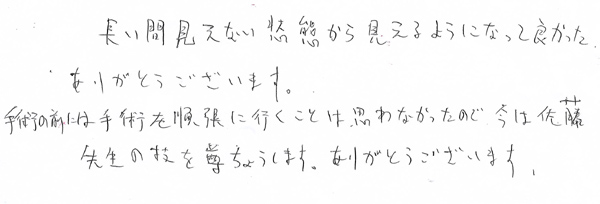 長い間見えない状態から見えるようになって良かった
ありがとうございます。
手術の前には手術を順張に行くことは思わなかったので今は佐藤
先生の技を尊ちょうします。ありがとうございます。